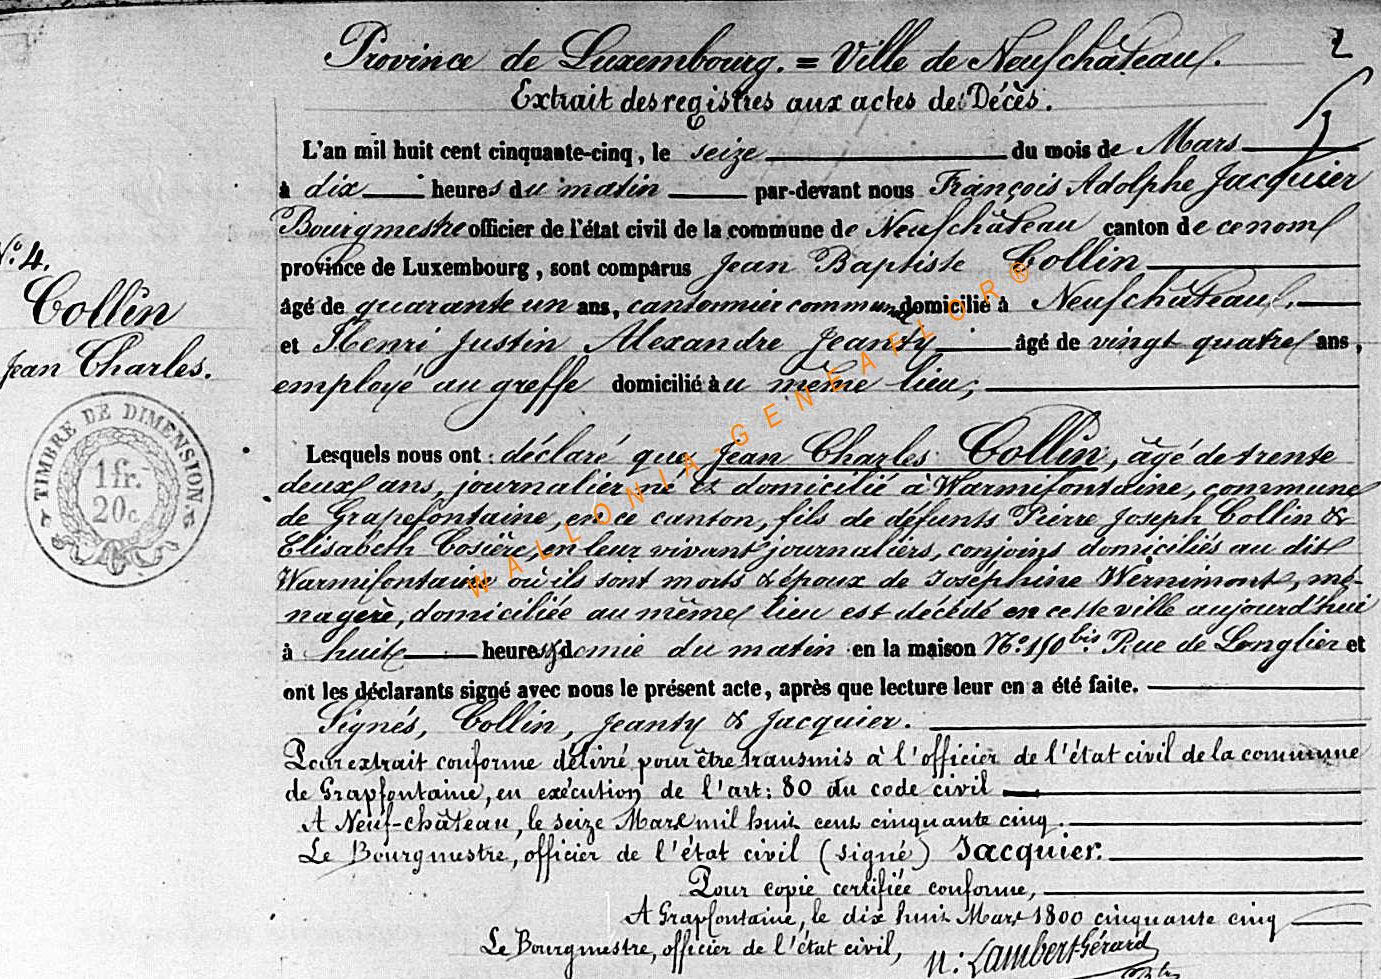 2
Province de Luxembourg. = Ville de Neufchâteau.
Extrait des registres aux actes de Décès.
L'an mil huit cent cinquante-cinq, le seize du mois de Mars
à dix heures du matin par-devant nous François Adolphe Jacquier
Bourgmestre officier de l'état civil de la commune de Neufchâteau canton de ce nom
province de Luxembourg, sont comparus Jean Baptiste Collin
âgé de quarante un ans, cantonnier communal domicilié à Neufchâteau,
et Henri Justin Alexandre Jeanty âgé de vingt quatre ans,
employé au greffe domicilié au même lieu;
Nº 4.
Collin
Jean Charles.
TIMBRE DE DIMENSION
1 fr.
20 c.
Lesquels nous ont déclaré que Jean Charles Collin, âgé de trente
deux ans, journalier né & domicilié à Warmifontaine, commune
de Grapefontaine, en ce canton, fils de défunts Pierre Joseph Collin &
Elisabeth Cosière, en leur vivant journaliers, conjoins domiciliés au dit
Warmifontaine où ils sont morts & époux de Joséphine Wernimont, mé-
nagère, domiciliée au même lieu est décédé en cette ville aujourd'hui
à huit heures & demie du matin en la maison Nº 150 bis Rue de Longlier et
ont les déclarants signé avec nous le présent acte, après que lecture leur en a été faite.
Signés, Collin, Jeanty & Jacquier.
Pour extrait conforme délivré pour être transmis à l'officier de l'état civil de la commune
de Grapfontaine, en exécution de l'art: 80 du code civil
A Neuf-château, le seize Mars mil huit cent cinquante cinq.
Le Bourgmestre, officier de l'état civil (signé) Jacquier.
Pour copie certifiée conforme,
A Grapfontaine, le dix huit Mars 1800 cinquante cinq
Le Bourgmestre, officier de l'état civil,
N: Lambert Gérard
WALLONIA-GENEAFLOR®